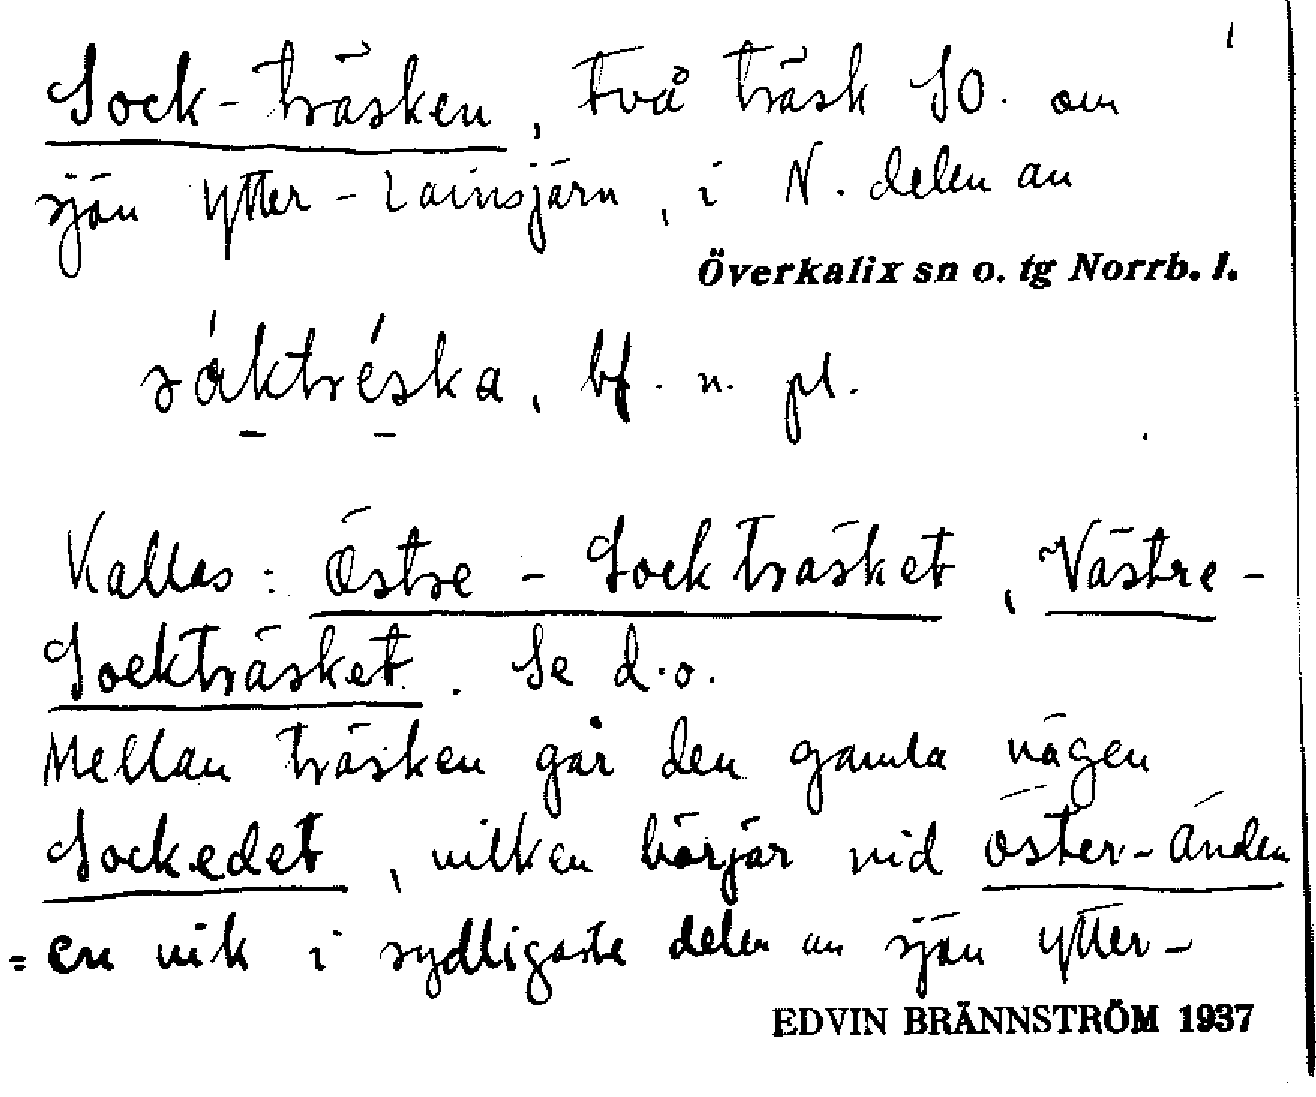 1
Sock-träsken, två träsk SO. om
sjön Ytter-Lainsjärn, i N. delen av
Överkalix sn o. tg Norrb. l.
såktréska, bf. n. pl.
Kallas: Östre-Sockträsket, Västre-
Sockträsket. Se d.o.
Mellan träsken går den gamla vägen
Sockedet, vilken börjar vid Öster-Änden
= en vik i sydligaste delen av sjön Ytter-
EDVIN BRÄNNSTRÖM 1937